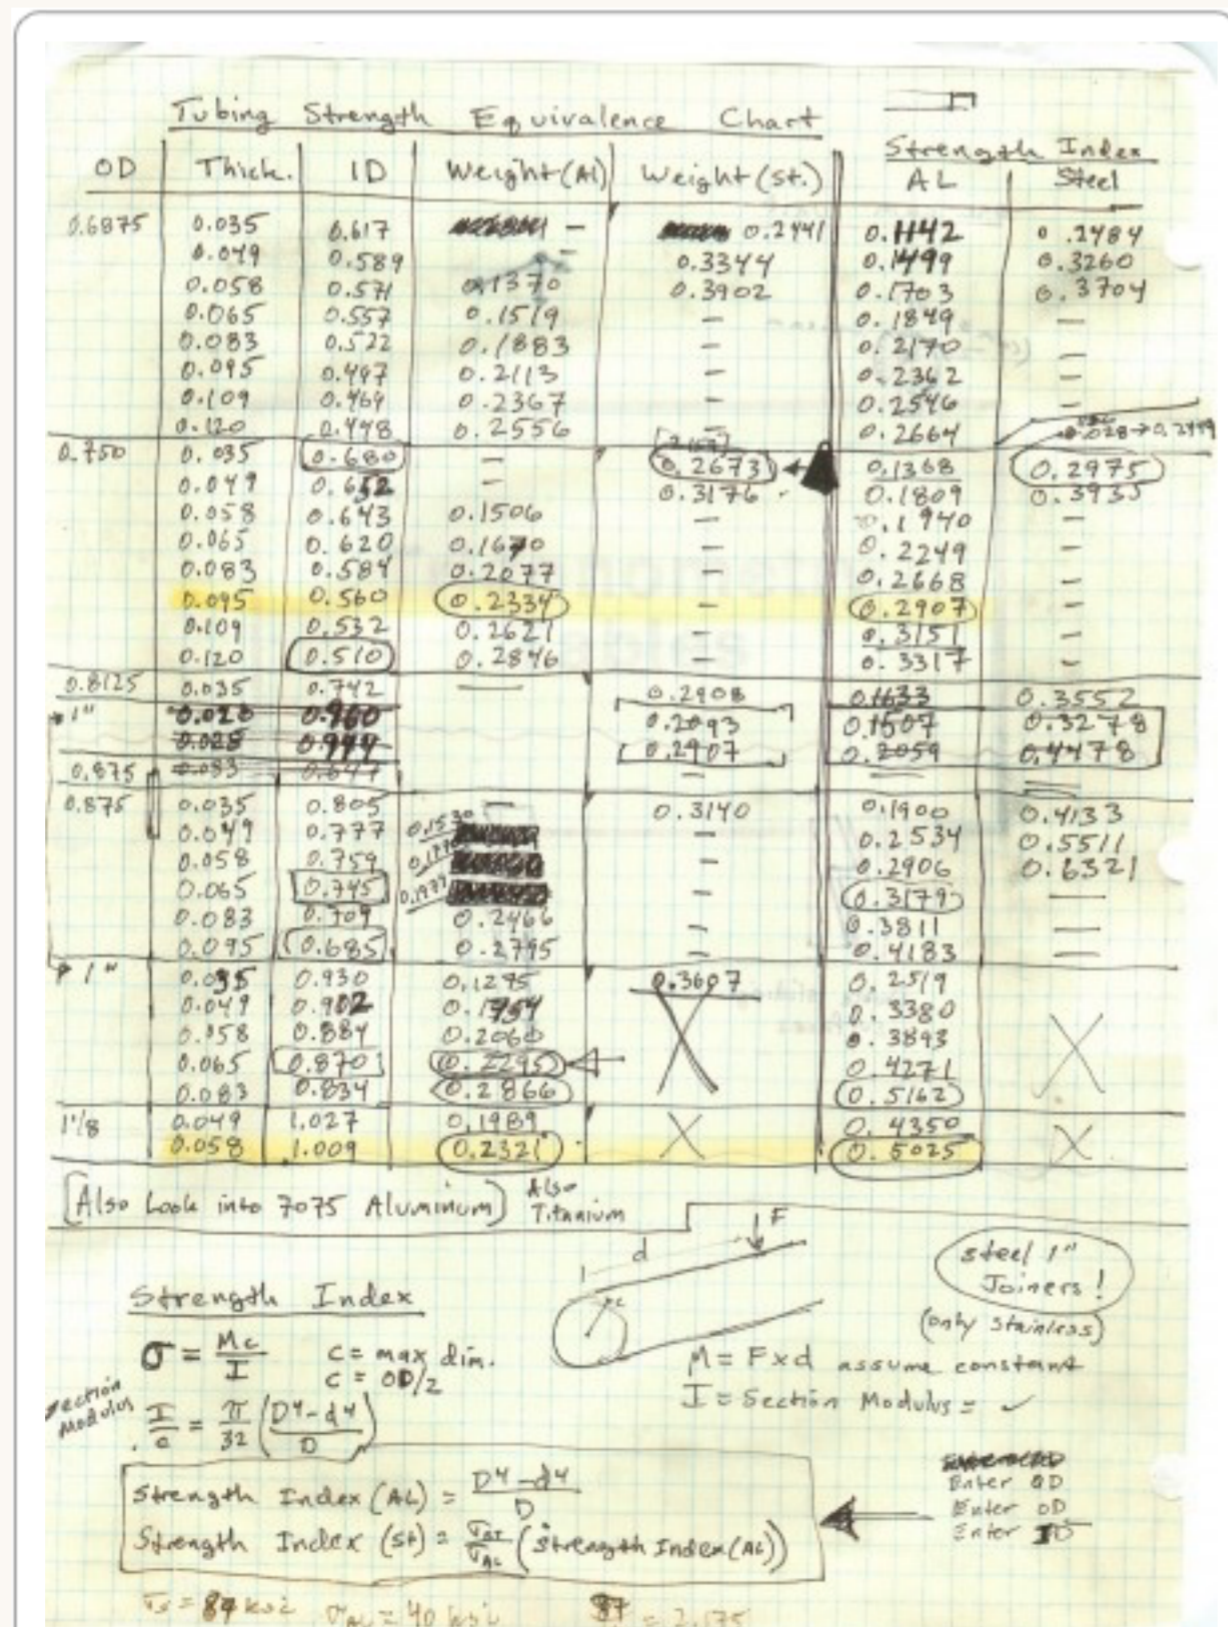 Tubing Strength Equivalence Chart
Strength Index
OD Thick. ID Weight(Al) Weight(St.) AL Steel
0.6875 0.035 0.617 – 0.2441 0.1142 0.2484
0.049 0.589 – 0.3344 0.1499 0.3260
0.058 0.571 0.1370 0.3902 0.1703 0.3704
0.065 0.557 0.1519 – 0.1849 –
0.083 0.522 0.1883 – 0.2170 –
0.095 0.497 0.2113 – 0.2362 –
0.109 0.469 0.2367 – 0.2546 –
0.120 0.448 0.2556 – 0.2664 0.028→0.2449
0.750 0.035 0.680 – 0.2673 0.1368 0.2975
0.049 0.652 – 0.3176 0.1809 0.3935
0.058 0.643 0.1506 – 0.1940 –
0.065 0.620 0.1670 – 0.2249 –
0.083 0.584 0.2077 – 0.2668 –
0.095 0.560 0.2334 – 0.2907 –
0.109 0.532 0.2621 – 0.3151 –
0.120 0.510 0.2846 – 0.3317 –
0.8125 0.035 0.742 — 0.2908 0.1633 0.3552
1" 0.028 0.960 0.2093 0.1507 0.3278
0.028 0.944 0.2907 0.2059 0.4478
0.875 0.083 – –
0.875 0.035 0.805 – 0.3140 0.1900 0.4133
0.049 0.777 0.1530 – 0.2534 0.5511
0.058 0.759 – 0.2906 0.6321
0.065 0.745 0.1977 – 0.3179 —
0.083 0.709 0.2466 – 0.3811 —
0.095 0.685 0.2795 – 0.4183 —
1" 0.035 0.930 0.1295 0.3607 0.2519
0.049 0.902 0.1754 0.3380
0.058 0.884 0.2060 0.3893
0.065 0.870 0.2295 0.4271
0.083 0.834 0.2866 0.5162
1 1/8 0.049 1.027 0.1989 X 0.4350 X
0.058 1.009 0.2321 0.5025
[Also Look into 7075 Aluminum] Also
Titanium
F
d
steel 1"
Joiners!
(only stainless)
Strength Index
σ = Mc/I c = max dim.
c = OD/2
M = F x d assume constant
I = Section Modulus = ✓
Section
Modulus
I/c = π/32 (D⁴-d⁴/D)
Strength Index (AL) = D⁴-d⁴/D
Strength Index (St) = σST/σAL (Strength Index (AL))
Enter OD
Enter OD
Enter ID
σs = 87 ksi σAL = 40 ksi 87 = 2.175